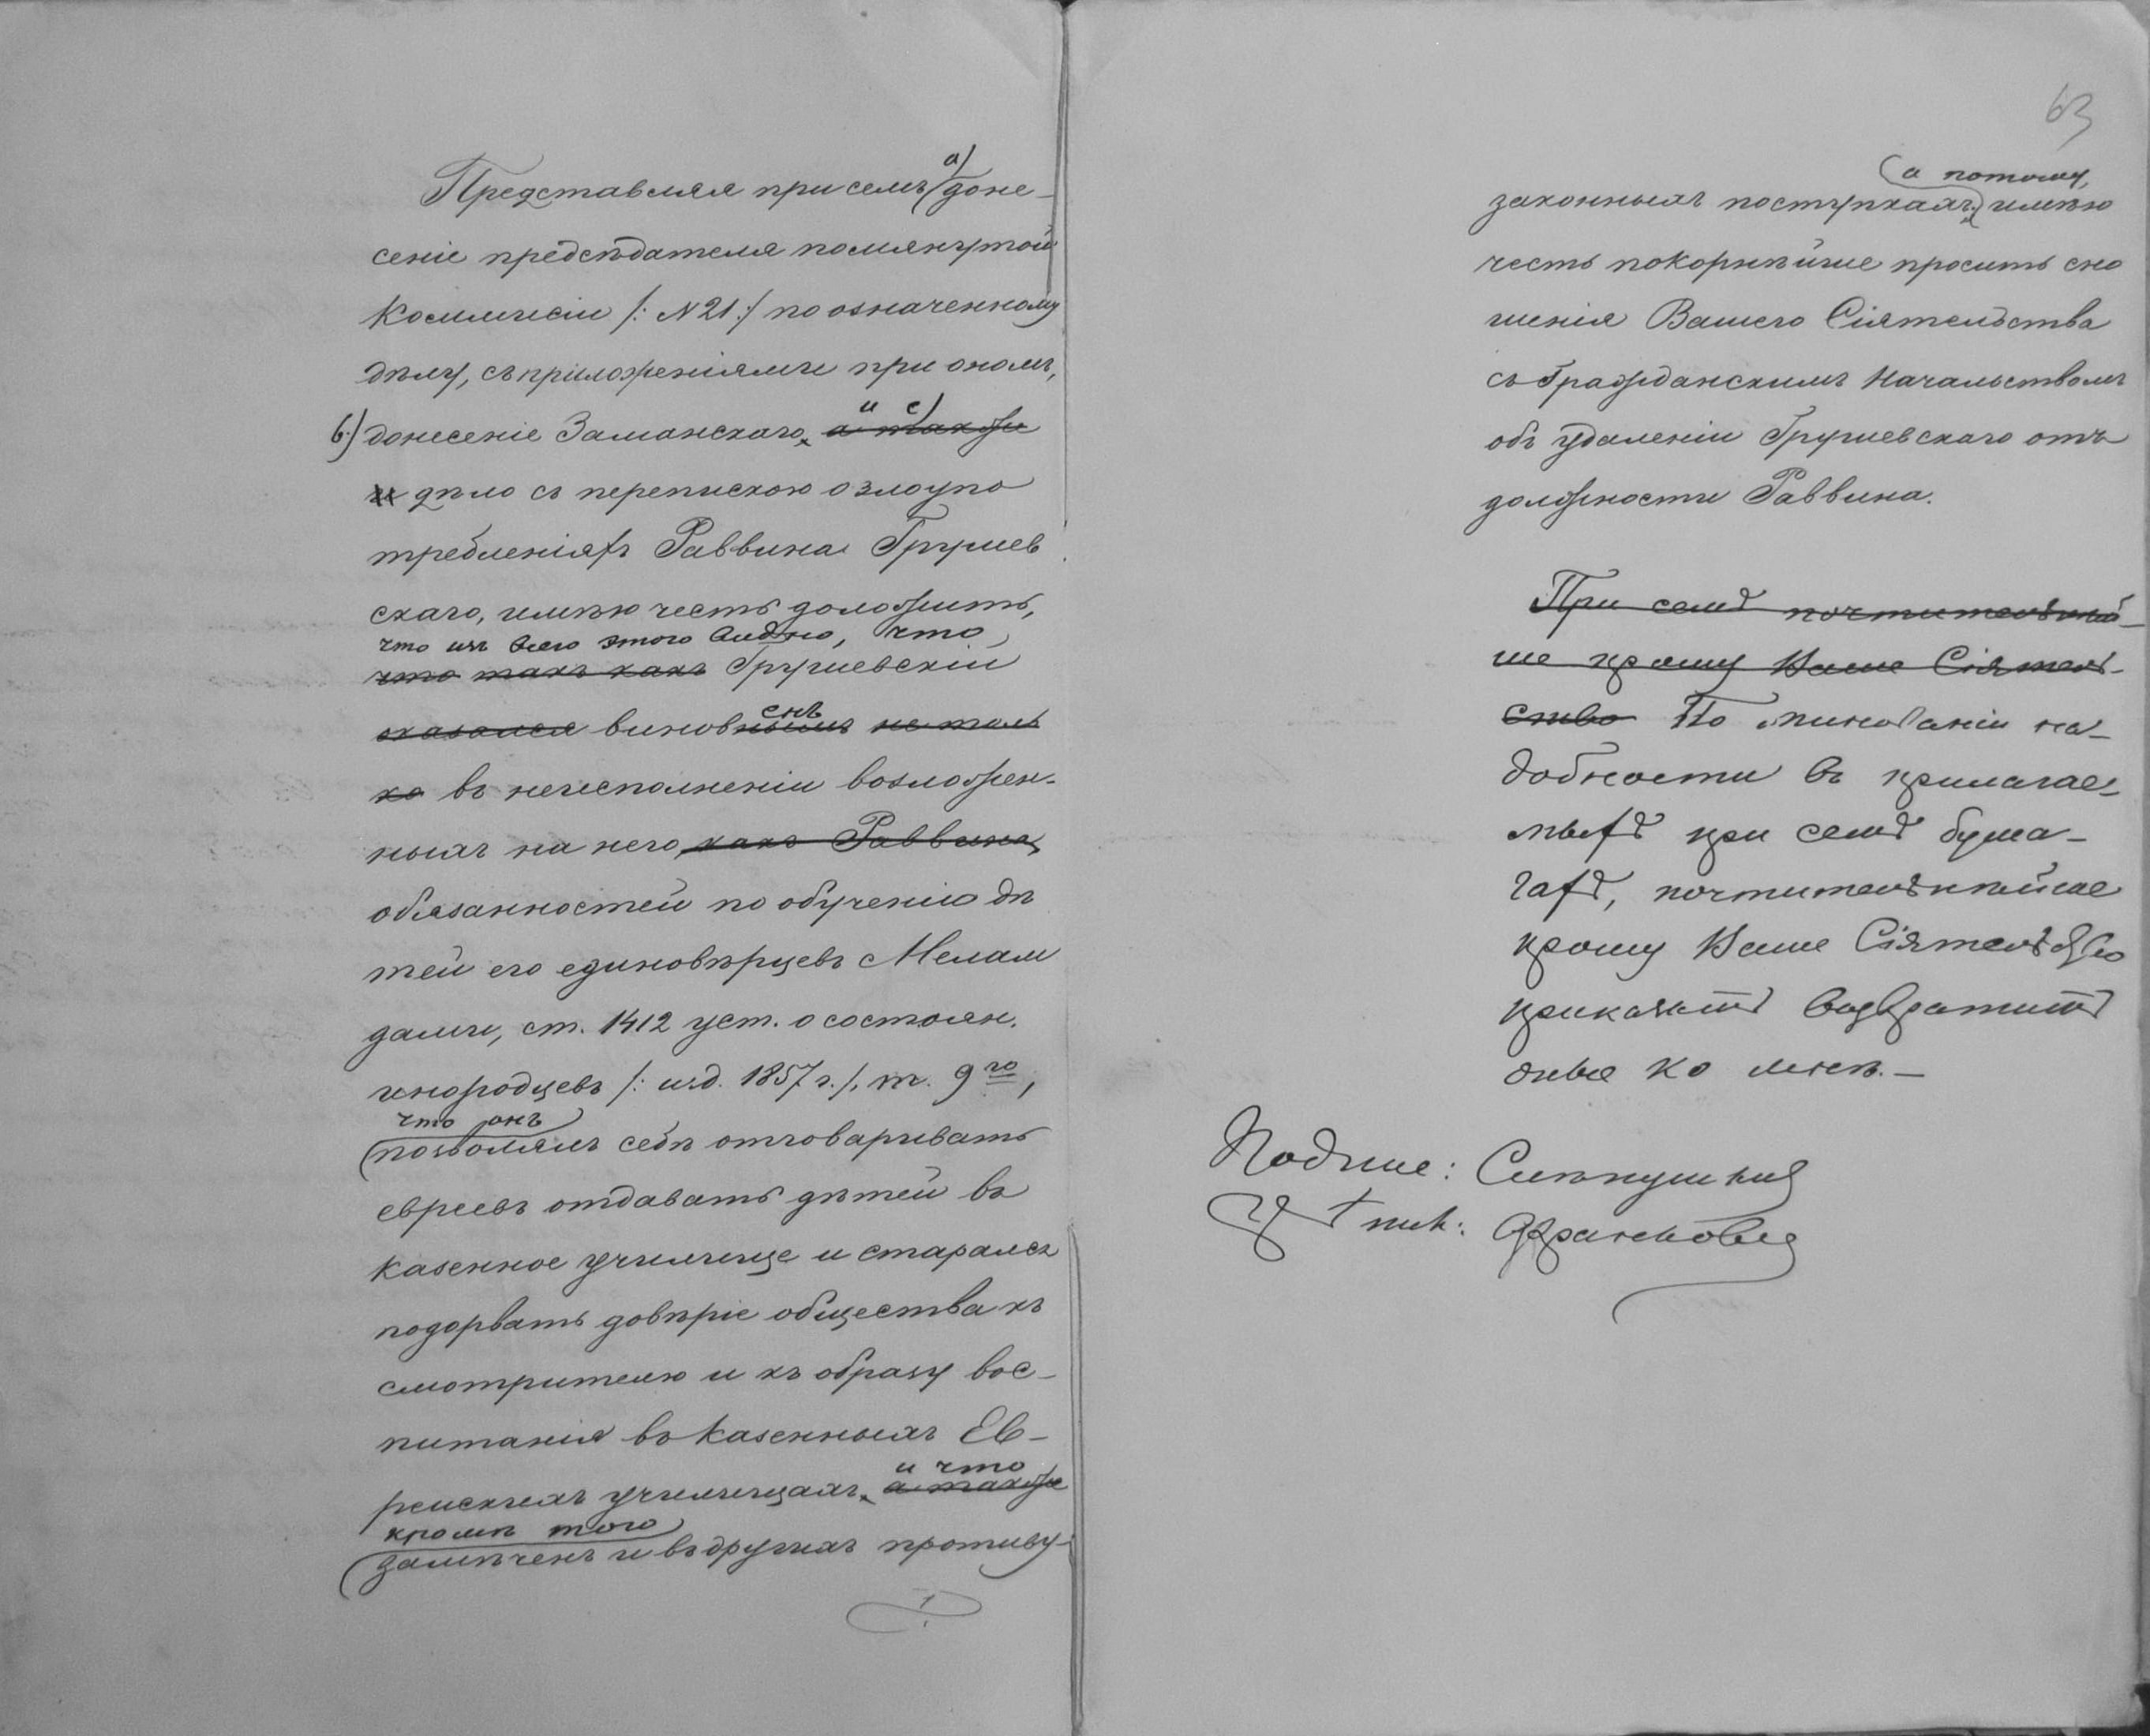 Представляя при семъ а) доне-
сеніе предсѣдателя помянутой
Коммисіи /: N 21 :/ по означенному
дѣлу, съ приложеніями при ономъ,
б.) донесеніе Заманскаго, и с) а также
и дѣло съ перепискою о злоупо
требленіяхъ Раввина Грушев
скаго, имѣю честь доложить,
что изъ всего этого видно, что
что такъ какъ Грушевскій
оказался виновнымъ енъ не толь
ко въ неисполненіи возложен-
ныхъ на него, какъ Раввина,
обязанностей по обученію дѣ
тей его единовѣрцевъ Мелам
дами, ст. 1412 уст. о состоян.
инородцевъ /: изд. 1857 г. /, т. 9го,
что онъ
позволялъ себѣ отговаривать
евреевъ отдавать дѣтей въ
казенное училище и старался
подорвать довѣріе общества къ
смотрителю и къ образу вос-
питанія въ казенныхъ Ев-
и что
рейскихъ училищахъ, а также
кромѣ того
замѣченъ и въ другихъ противу-
63
а потому,
законныхъ поступкахъ, имѣю
честь покорнѣйше просить сно
шенія Вашего Сіятельства
съ Гражданскимъ Начальствомъ
объ удаленіи Грушевскаго отъ
должности Раввина.
При семъ почтительнѣй-
ше прошу Ваше Сіятель-
ство По минованіи на-
добности въ прилагае-
мыхъ при семъ бума-
гахъ, почтительнѣйше
прошу Ваше Сіятельство
приказать возвратить
оные ко мнѣ.-
Подпис: